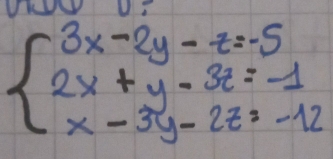 3x - 2y - z = -5
2x + y - 3z = -1
x - 3y - 2z = -12